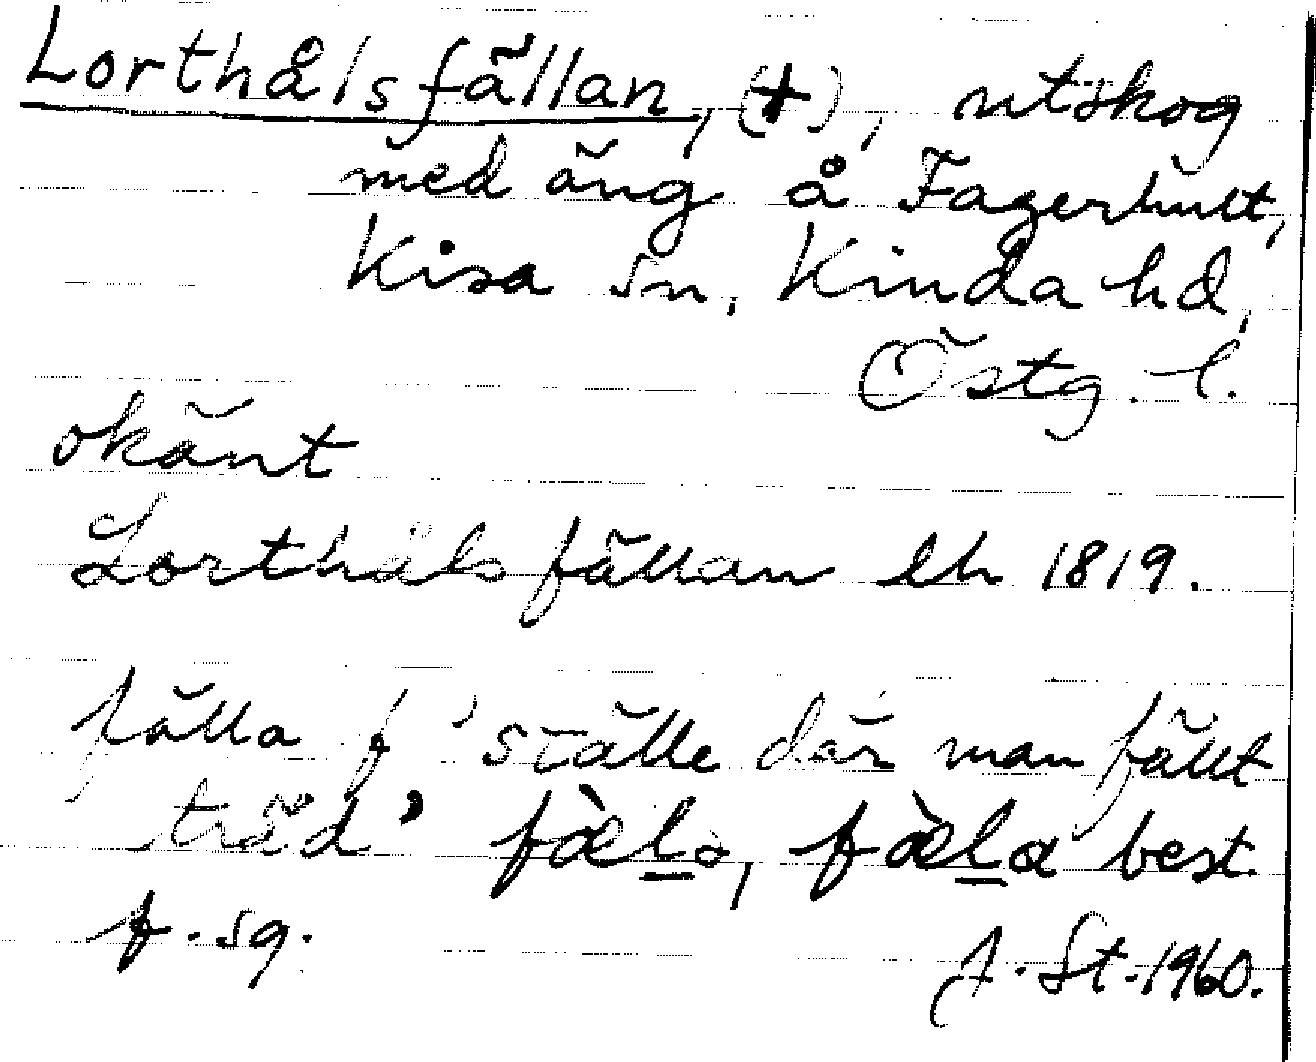 Lorthålsfällan, (†), utskog
med äng å Fagerhult,
Kisa sn, Kinda hd,
Östg. l.
okänt
Lorthålsfällan lh 1819.
fälla f 'ställe där man fällt
träd' fæ̀l̲a, fæ̀l̲a best.
f. sg.
A. St. 1960.